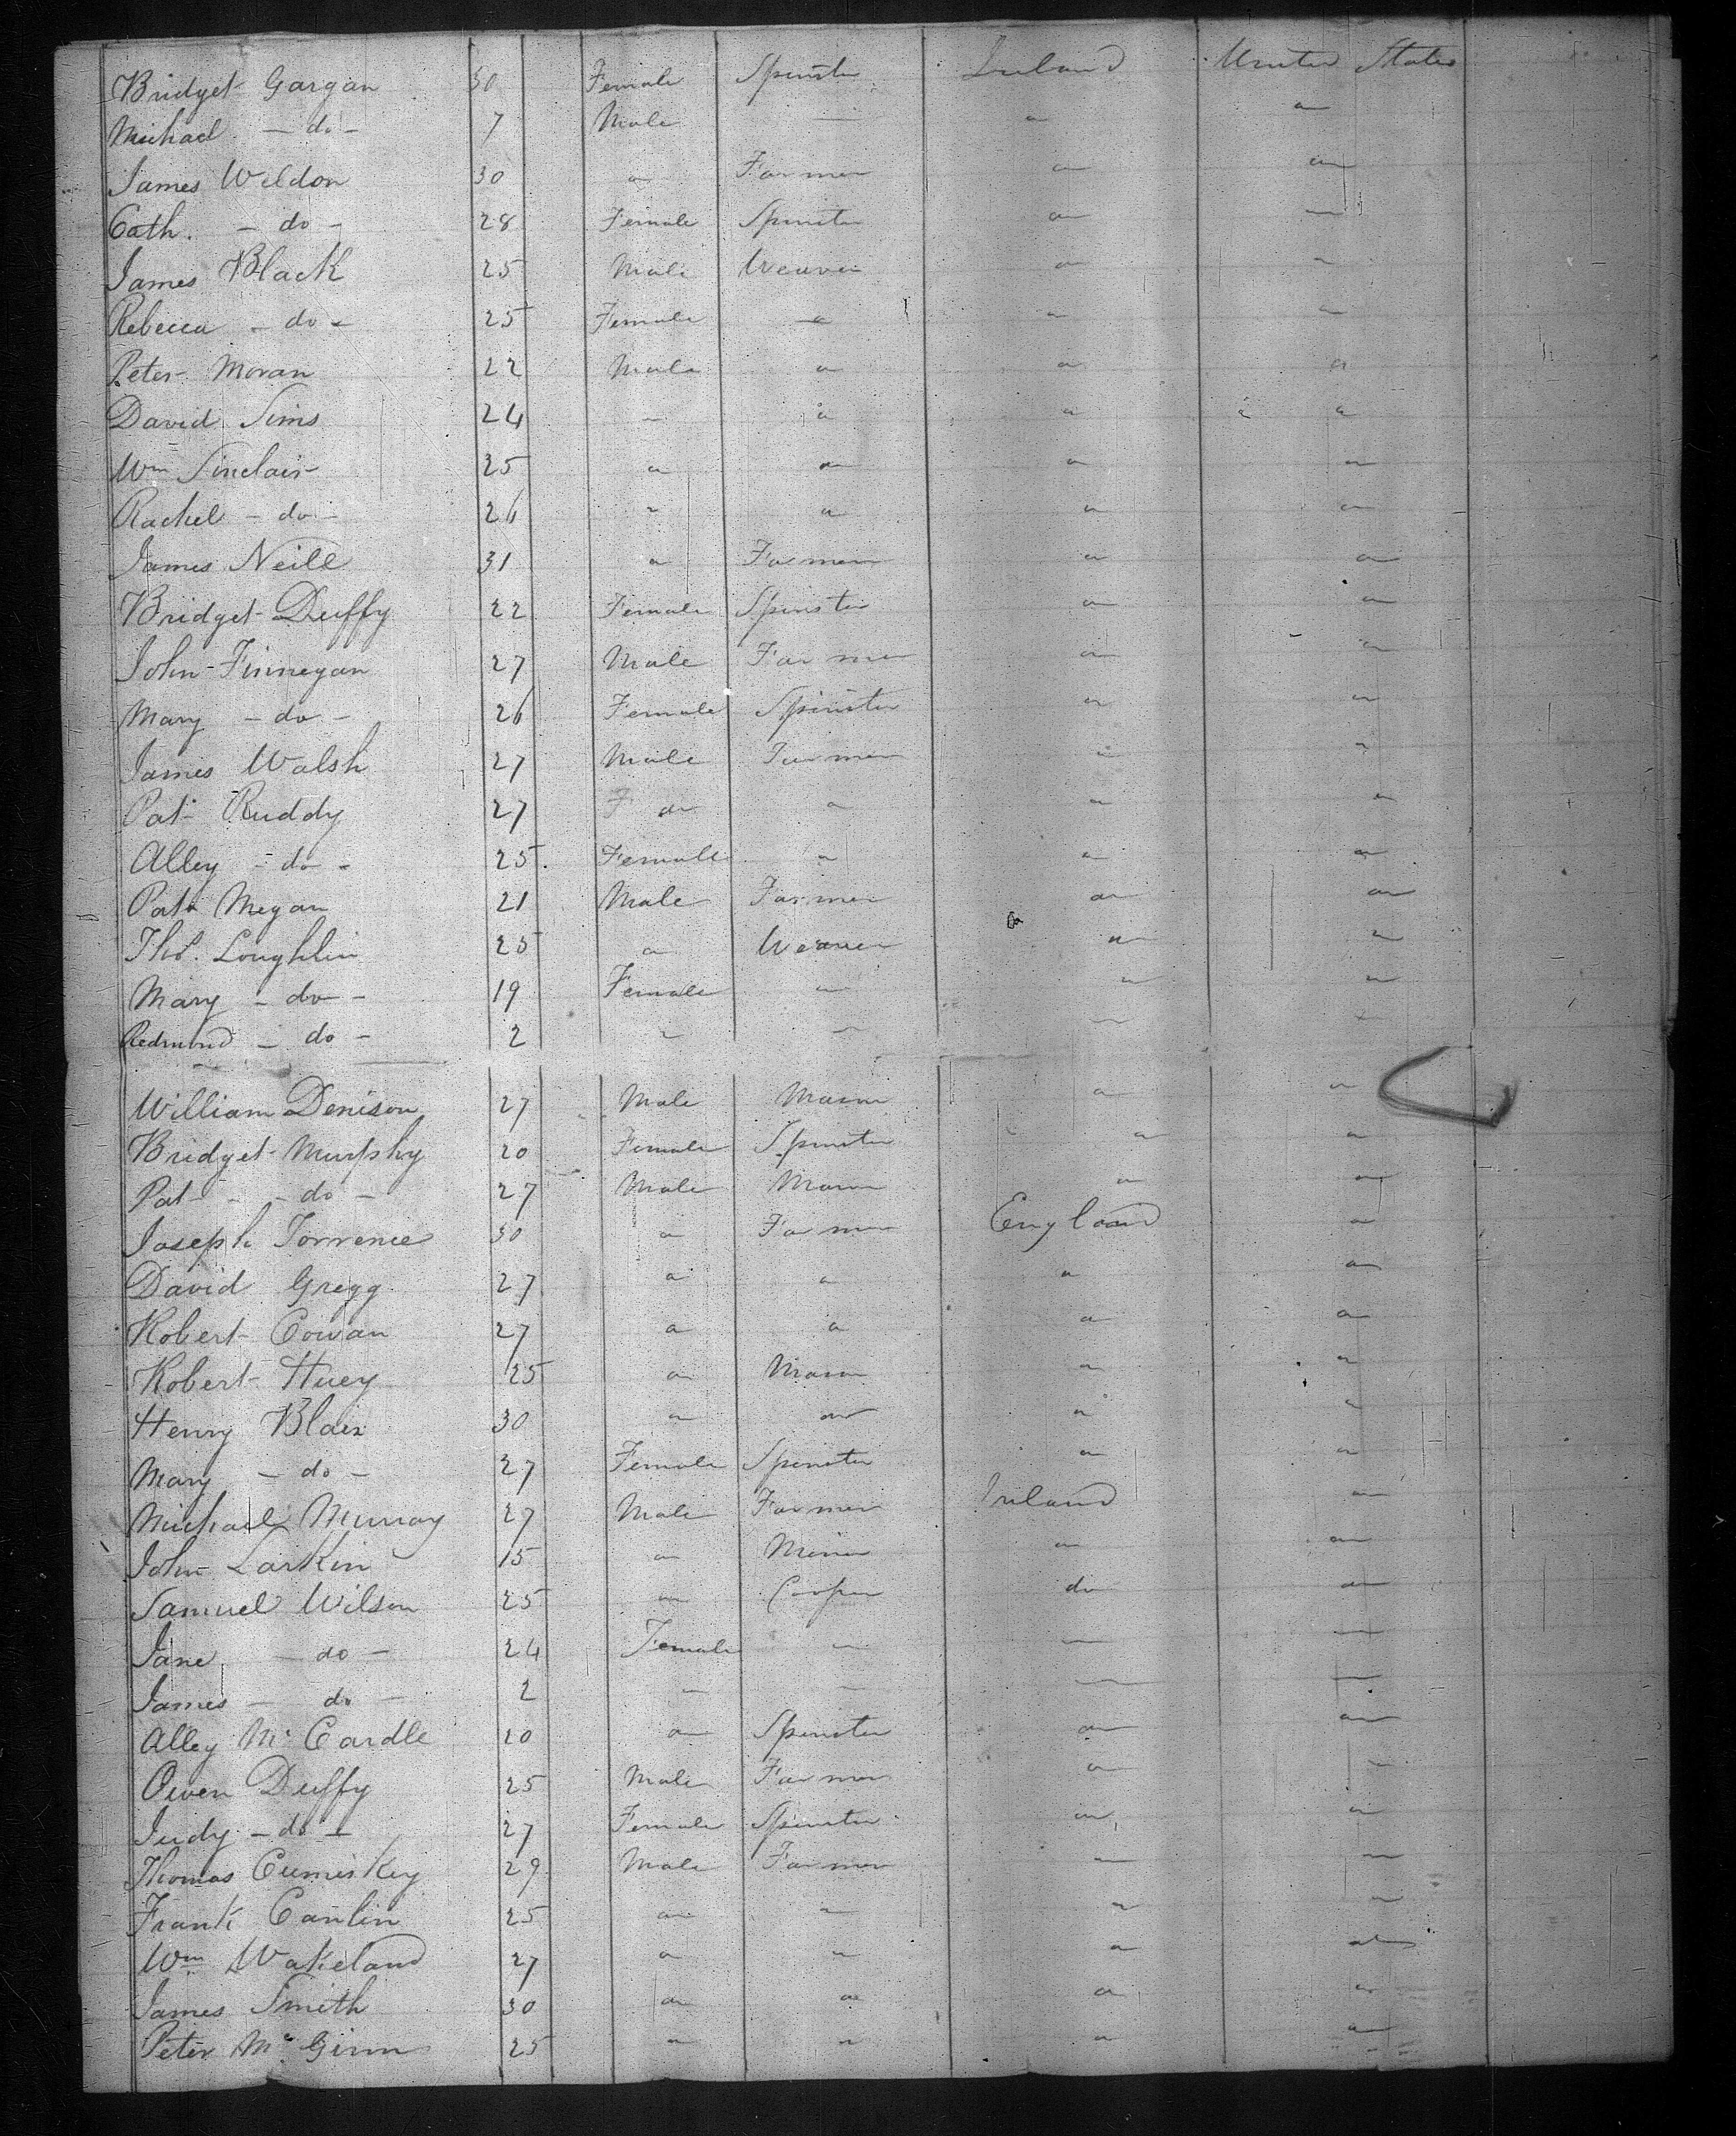 Bridget Gargan 30 Female Spinster Ireland United States
Michael - do - 7 Male — " "
James Weldon 30 " Farmer " "
Cath. - do - 28 Female Spinster " "
James Black 25 Male Weaver " "
Rebecca - do - 25 Female " " "
Peter Moran 22 Male " " "
David Sims 24 " " " "
Wm Sinclair 25 " " " "
Rachel - do - 26 " " " "
James Neill 31 " Farmer " "
Bridget Duffy 22 Female Spinster " "
John Finnegan 27 Male Farmer " "
Mary - do - 26 Female Spinster " "
James Walsh 27 Male Farmer " "
Pat Ruddy 27 " " " "
Alley - do - 25. Female " " "
Pat Megan 21 Male Farmer " "
Thos. Loughlin 25 " Weaver " "
Mary - do - 19 Female " " "
Redmond - do - 2 " " " "
William Denison 27 Male Mason " "
Bridget Murphy 20 Female Spinster " "
Pat - - do - 27 Male Mason " "
Joseph Torrence 30 " Farmer England "
David Gregg 27 " " " "
Robert Cowan 27 " " " "
Robert Huey 25 " Mason " "
Henry Blair 30 " " " "
Mary - do - 27 Female Spinster " "
Michael Murray 27 Male Farmer Ireland "
John Larkin 15 " Miner " "
Samuel Wilson 25 " Cooper do "
Jane - do - 24 Female " " "
James - do - 2 " " " "
Alley Mc Cardle 20 " Spinster " "
Owen Duffy 25 Male Farmer " "
Judy - do - 27 Female Spinster " "
Thomas Cumiskey 29 Male Farmer " "
Frank Canlin 25 " " " "
Wm Wakeland 27 " " " "
James Smith 30 " " " "
Peter Mc Ginn 25 " " " "